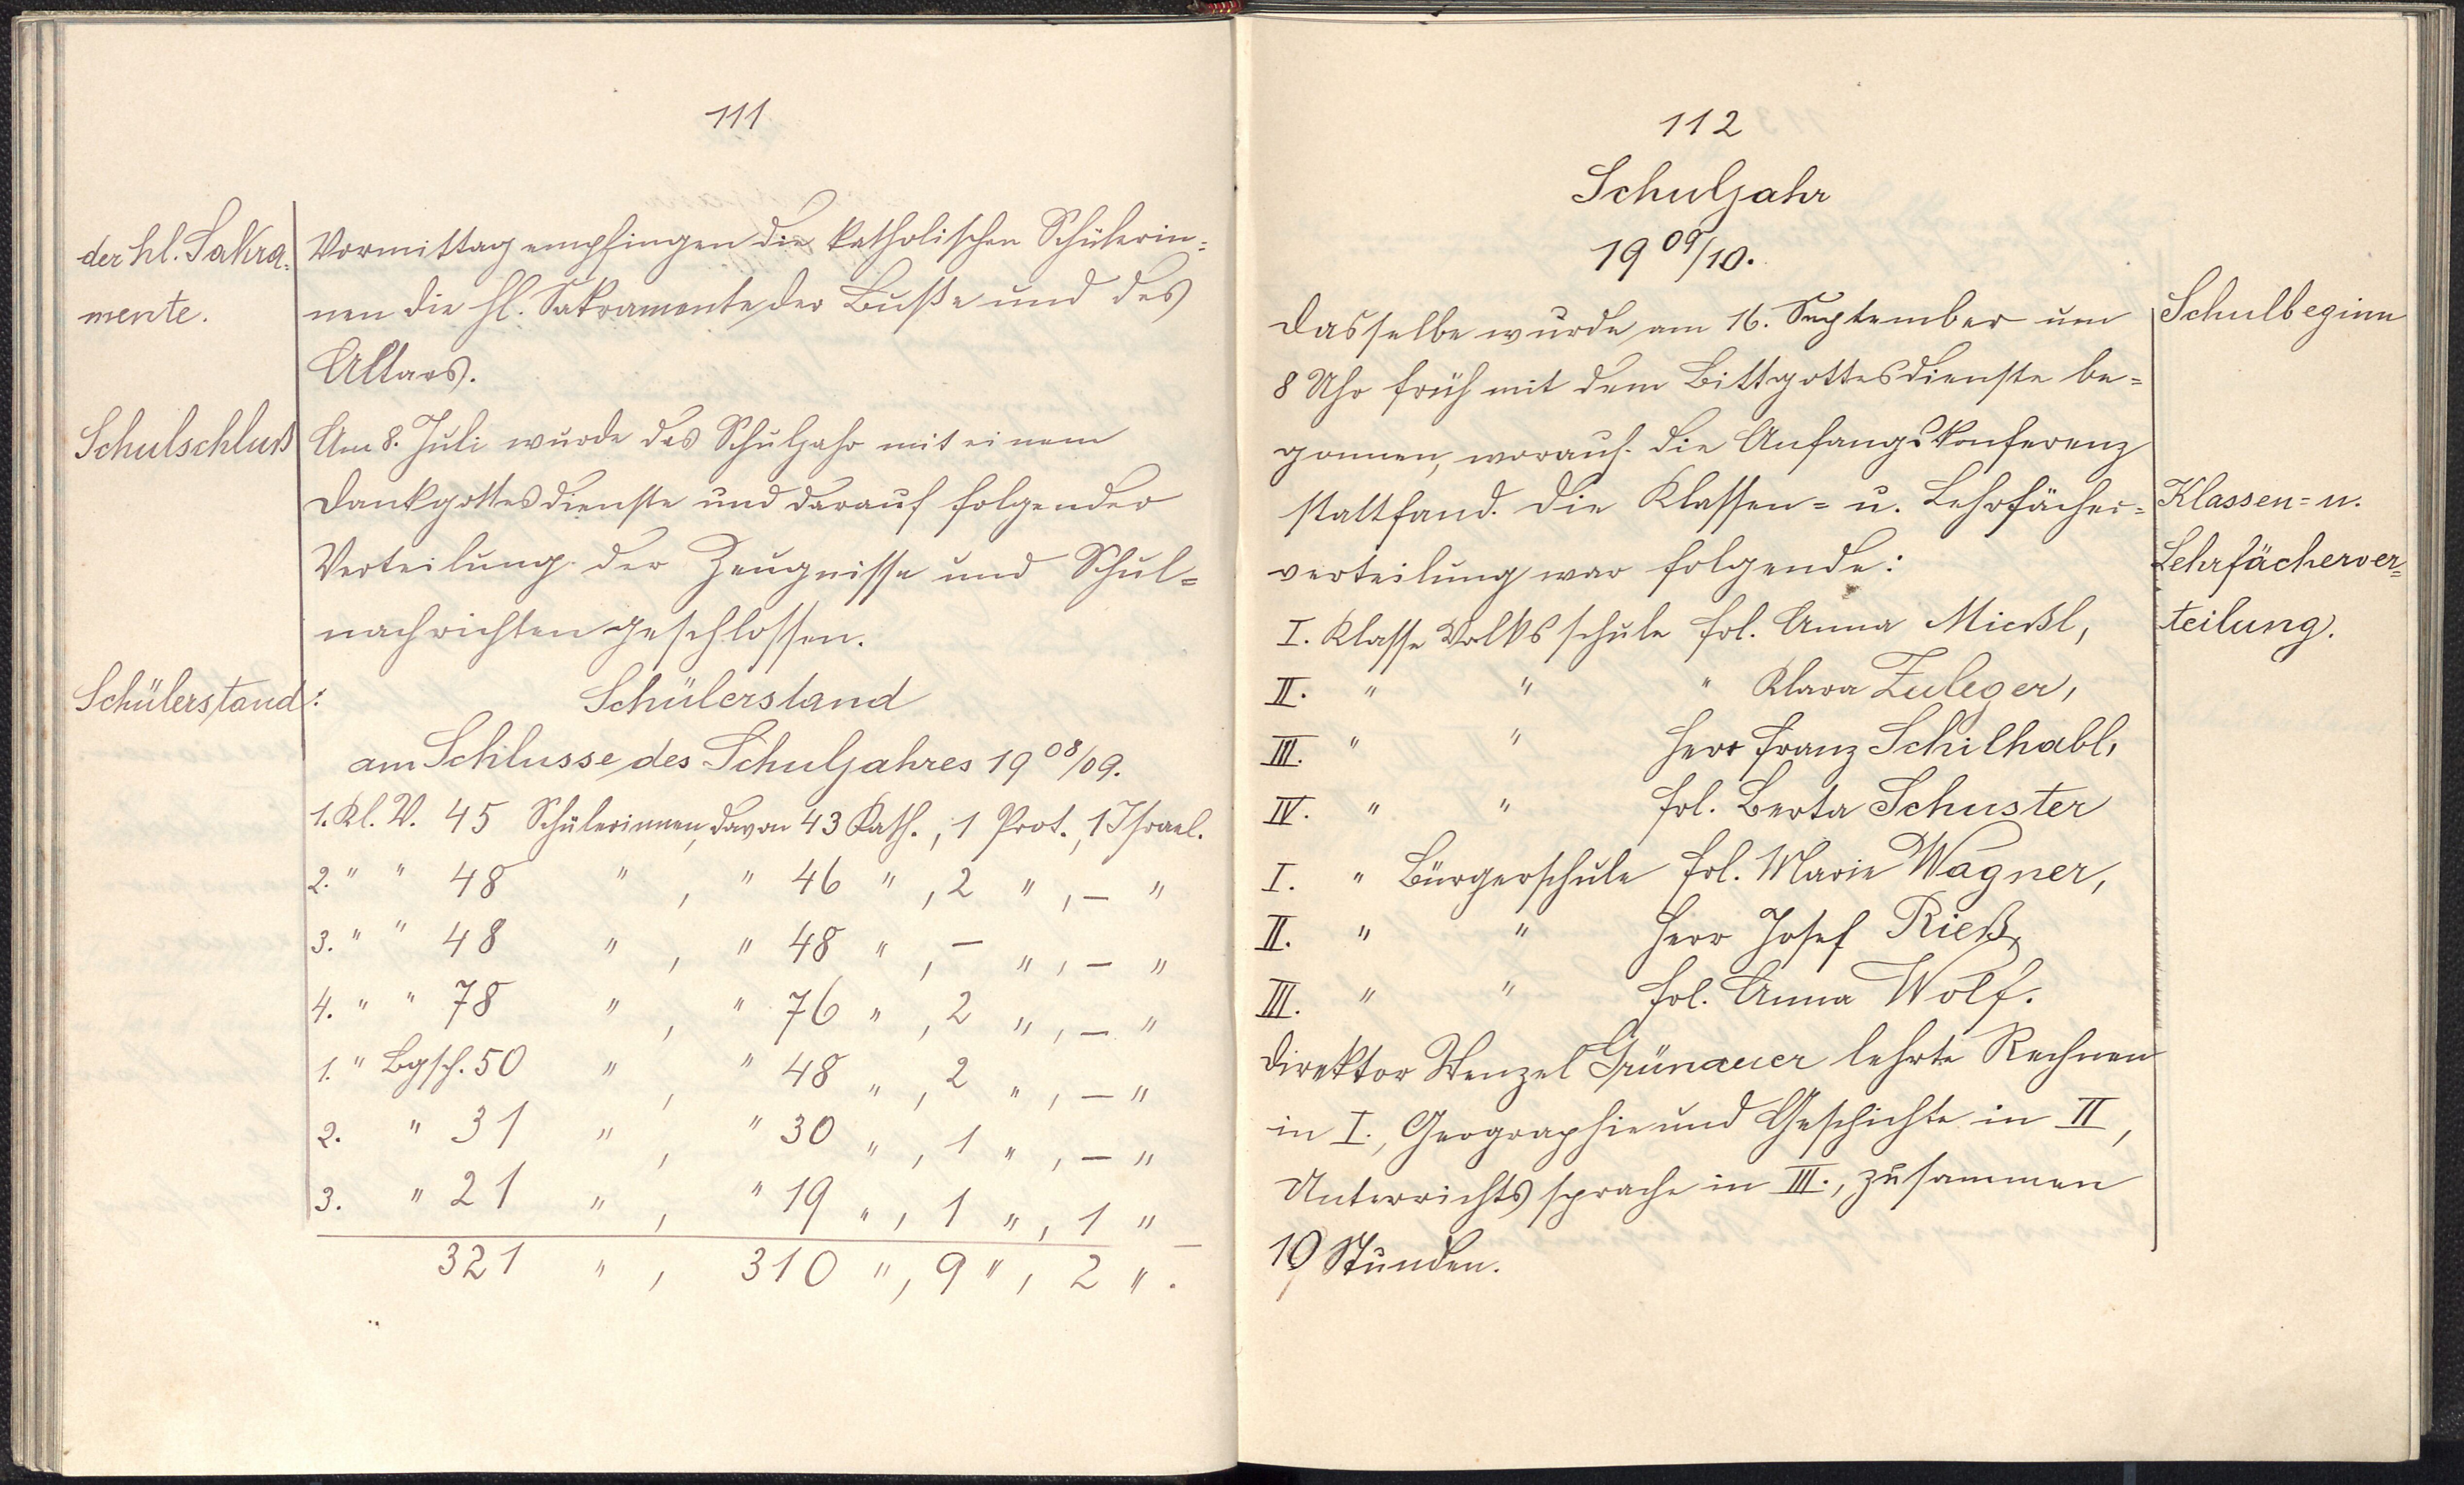 111
der hl. Sakra-
mente.
Vormittag empfingen die katholischen Schülerin-
nen die hl. Sakramente der Buße und des
Altars.
Schulschluß
Am 8. Juli wurde das Schuljahr mit einem
Dankgottesdienste und darauf folgender
Verteilung der Zeugnisse und Schul-
nachrichten geschlossen.
Schülerstand:
Schülerstand
am Schlusse des Schuljahres 1908/09.
1. Kl. V. 45 Schülerinnen, davon 43 Kath., 1 Prot., 1 Israel.
2. " " 48 " , " 46 " , 2 " , – "
3. " " 48 " , " 48 " , – " , – "
4. " " 78 " , " 76 " , 2 " , – "
1. " Bgsch. 50 " , " 48 " , 2 " , – "
2. " 31 " , " 30 " , 1 " , – "
3. " 21 " , " 19 " , 1 " , 1 "
321 " , 310 " , 9 " , 2 " .
112
Schuljahr
1909/10.
Dasselbe wurde am 16. September um
8 Uhr früh mit dem Bittgottesdienste be-
gonnen, worauf die Anfangskonferenz
stattfand. Die Klassen- u. Lehrfächer-
verteilung war folgende:
Schulbeginn
Klassen- u.
Lehrfächerver-
teilung.
I. Klasse Volksschule Frl. Anna Mießl,
II. " " " Klara Zuleger,
III. " " Herr Franz Schilhabl,
IV. " " Frl. Berta Schuster
I. " Bürgerschule Frl. Marie Wagner,
II. " " Herr Josef Rieß,
III. " " Frl. Anna Wolf.
Direktor Wenzel Grünauer lehrte Rechnen
in I., Geographie und Geschichte in II,
Unterrichtssprache in III., zusammen
Stunden.